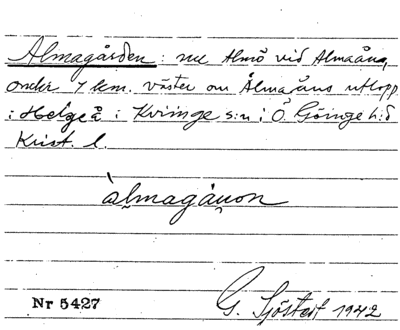 Almagården: nu Almö vid Almaån,
under 1 km. väster om Almaåns utlopp
i Helgeå i Kvinge s:n i Ö. Göinge h:d
Krist. l.
àlmagåʼn̥on
Nr 5427
G. Sjöstedt 1942